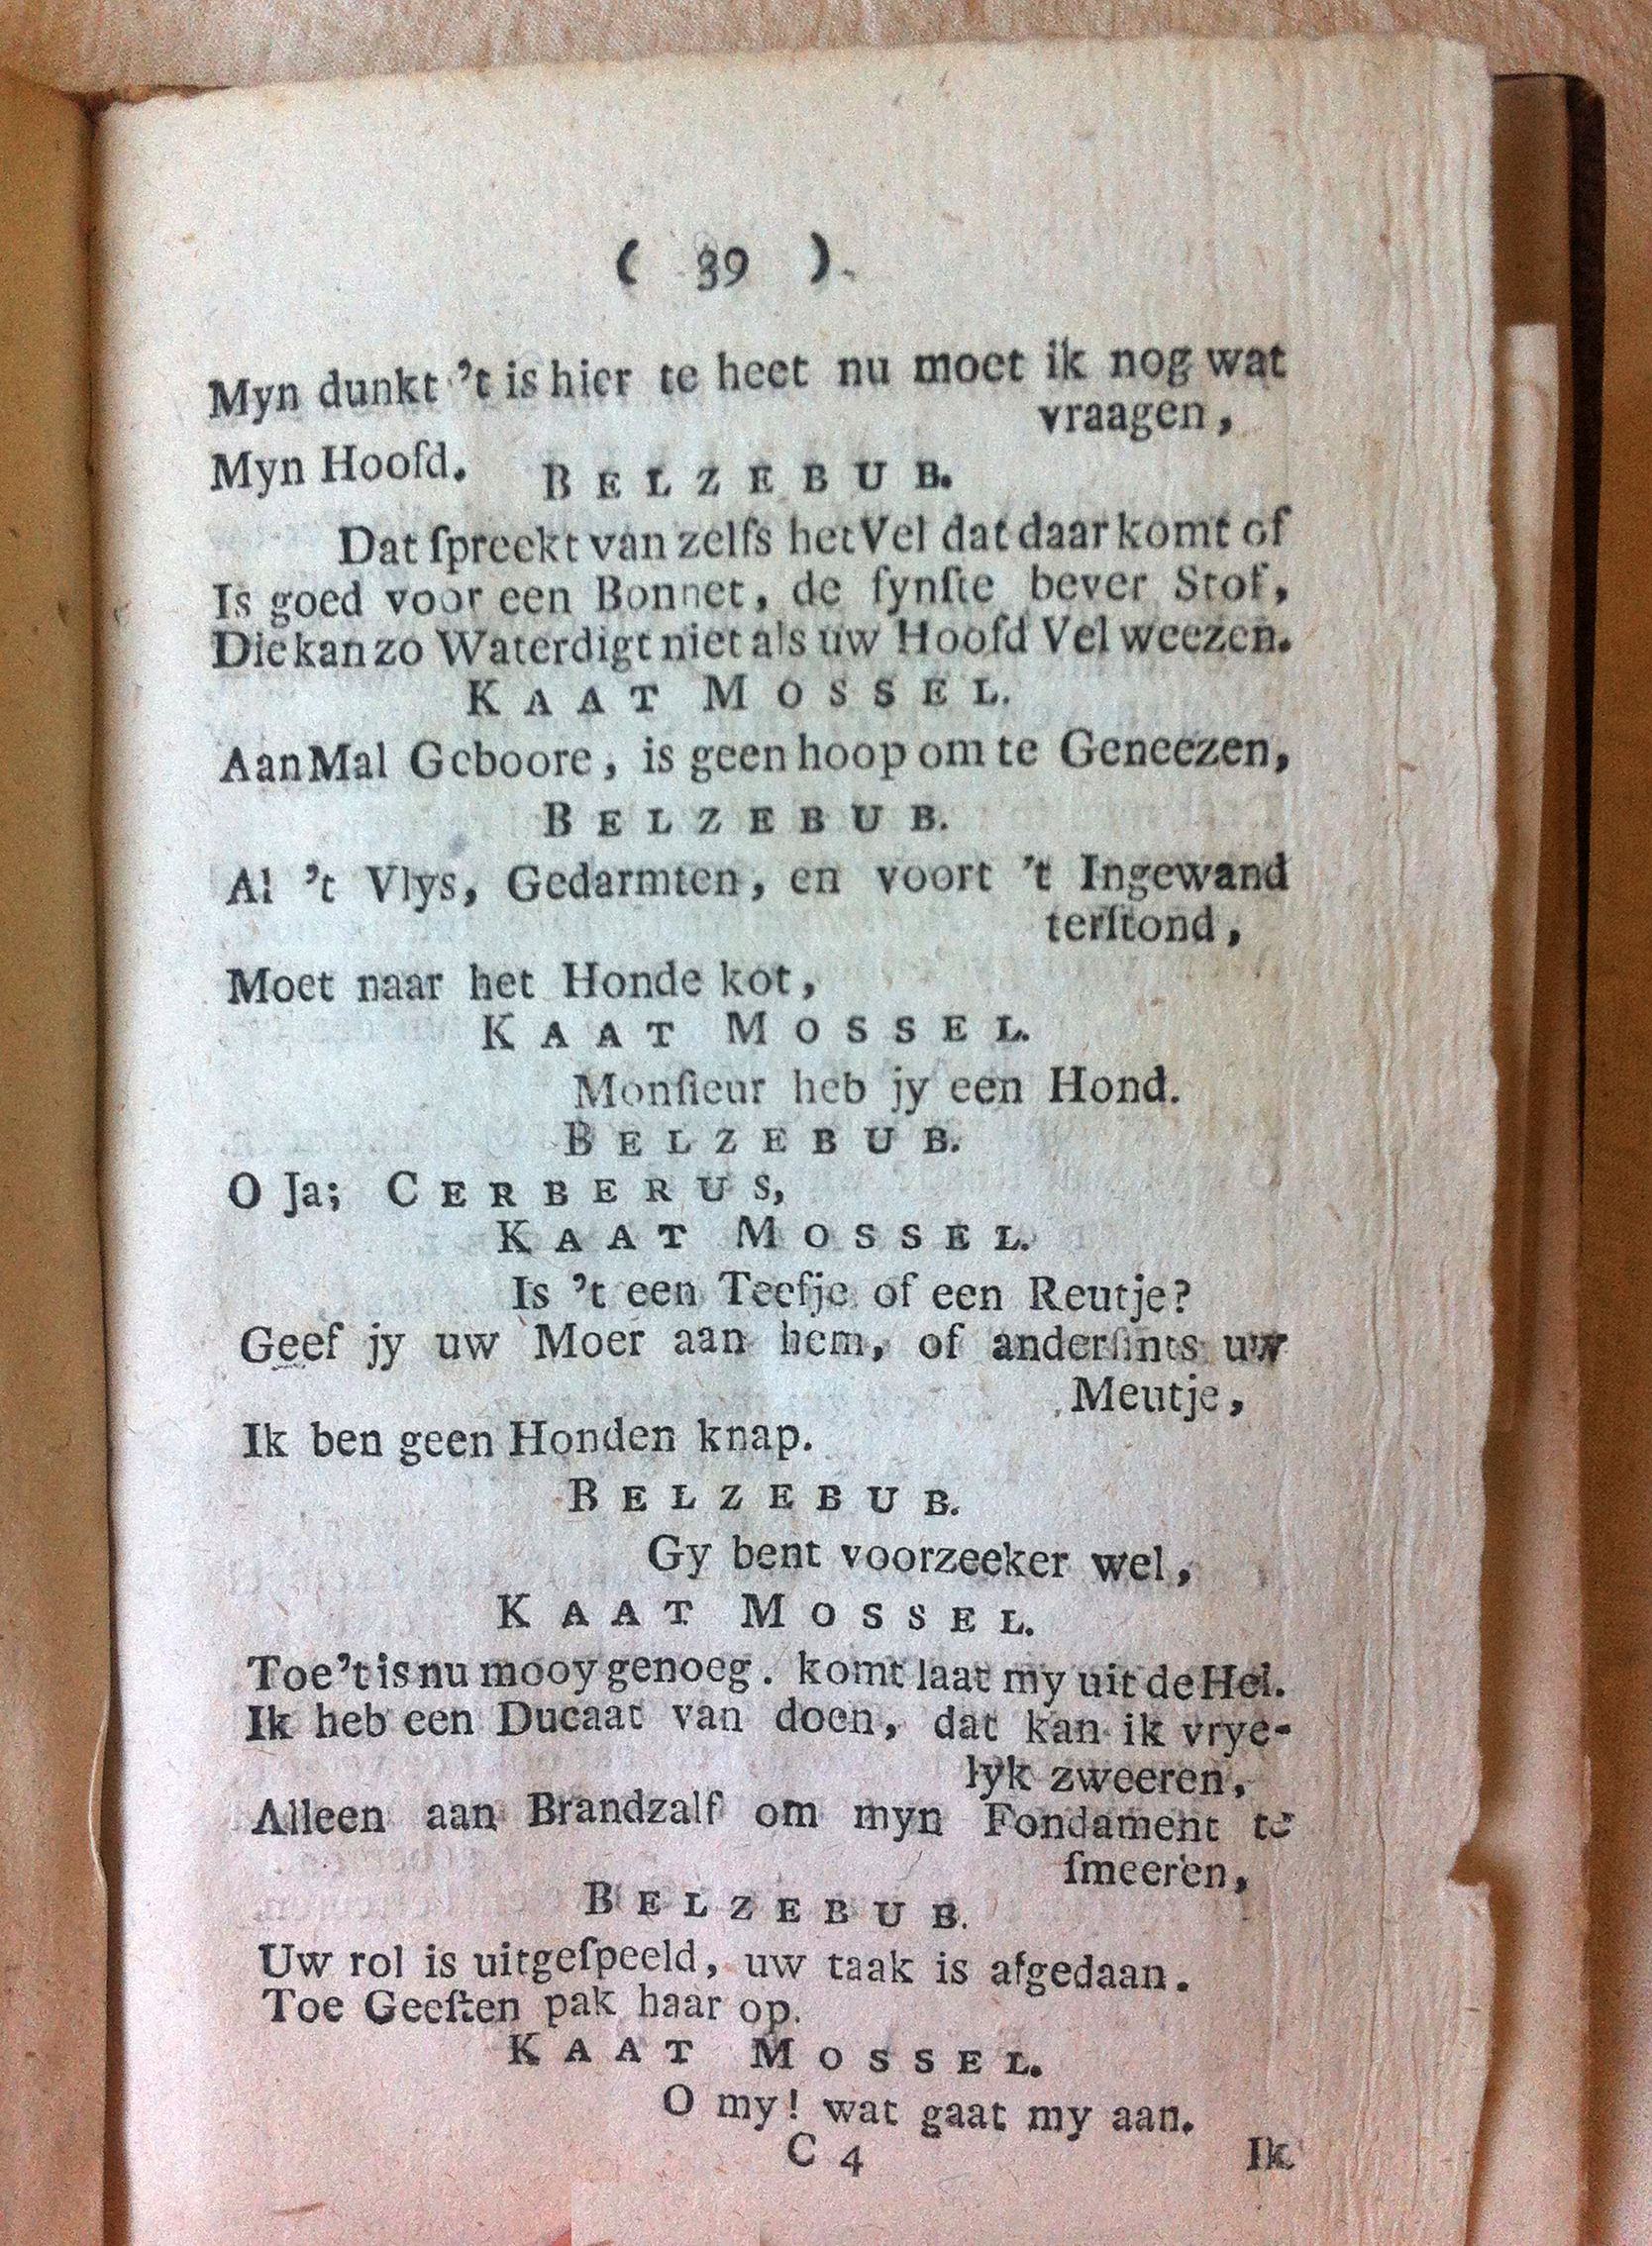 ( 39 )
Myn dunkt 't is hier te heet nu moet ik nog wat
vraagen,
Myn Hoofd. BELZEBUB.
Dat ſpreekt van zelfs het Vel dat daar komt of
Is goed voor een Bonnet, de fynſte bever Stof,
Die kan zo Waterdigt niet als uw Hoofd Vel weezen.
KAAT MOSSEL.
Aan Mal Geboore, is geen hoop om te Geneezen,
BELZEBUB.
Al 't Vlys, Gedarmten, en voort 't Ingewand
terſtond,
Moet naar het Honde kot,
KAAT MOSSEL.
Monſieur heb jy een Hond.
BELZEBUB.
O Ja; CERBERUS,
KAAT MOSSEL.
Is 't een Teefje of een Reutje?
Geef jy uw Moer aan hem, of anderſints uw
Meutje,
Ik ben geen Honden knap.
BELZEBUB.
Gy bent voorzeeker wel,
KAAT MOSSEL.
Toe 't is nu mooy genoeg. komt laat my uit de Hel.
Ik heb een Ducaat van doen, dat kan ik vrye-
lyk zweeren,
Alleen aan Brandzalf om myn Fondament te
ſmeeren,
BELZEBUB.
Uw rol is uitgeſpeeld, uw taak is afgedaan.
Toe Geeſten pak haar op.
KAAT MOSSEL.
O my! wat gaat my aan.
C 4 Ik